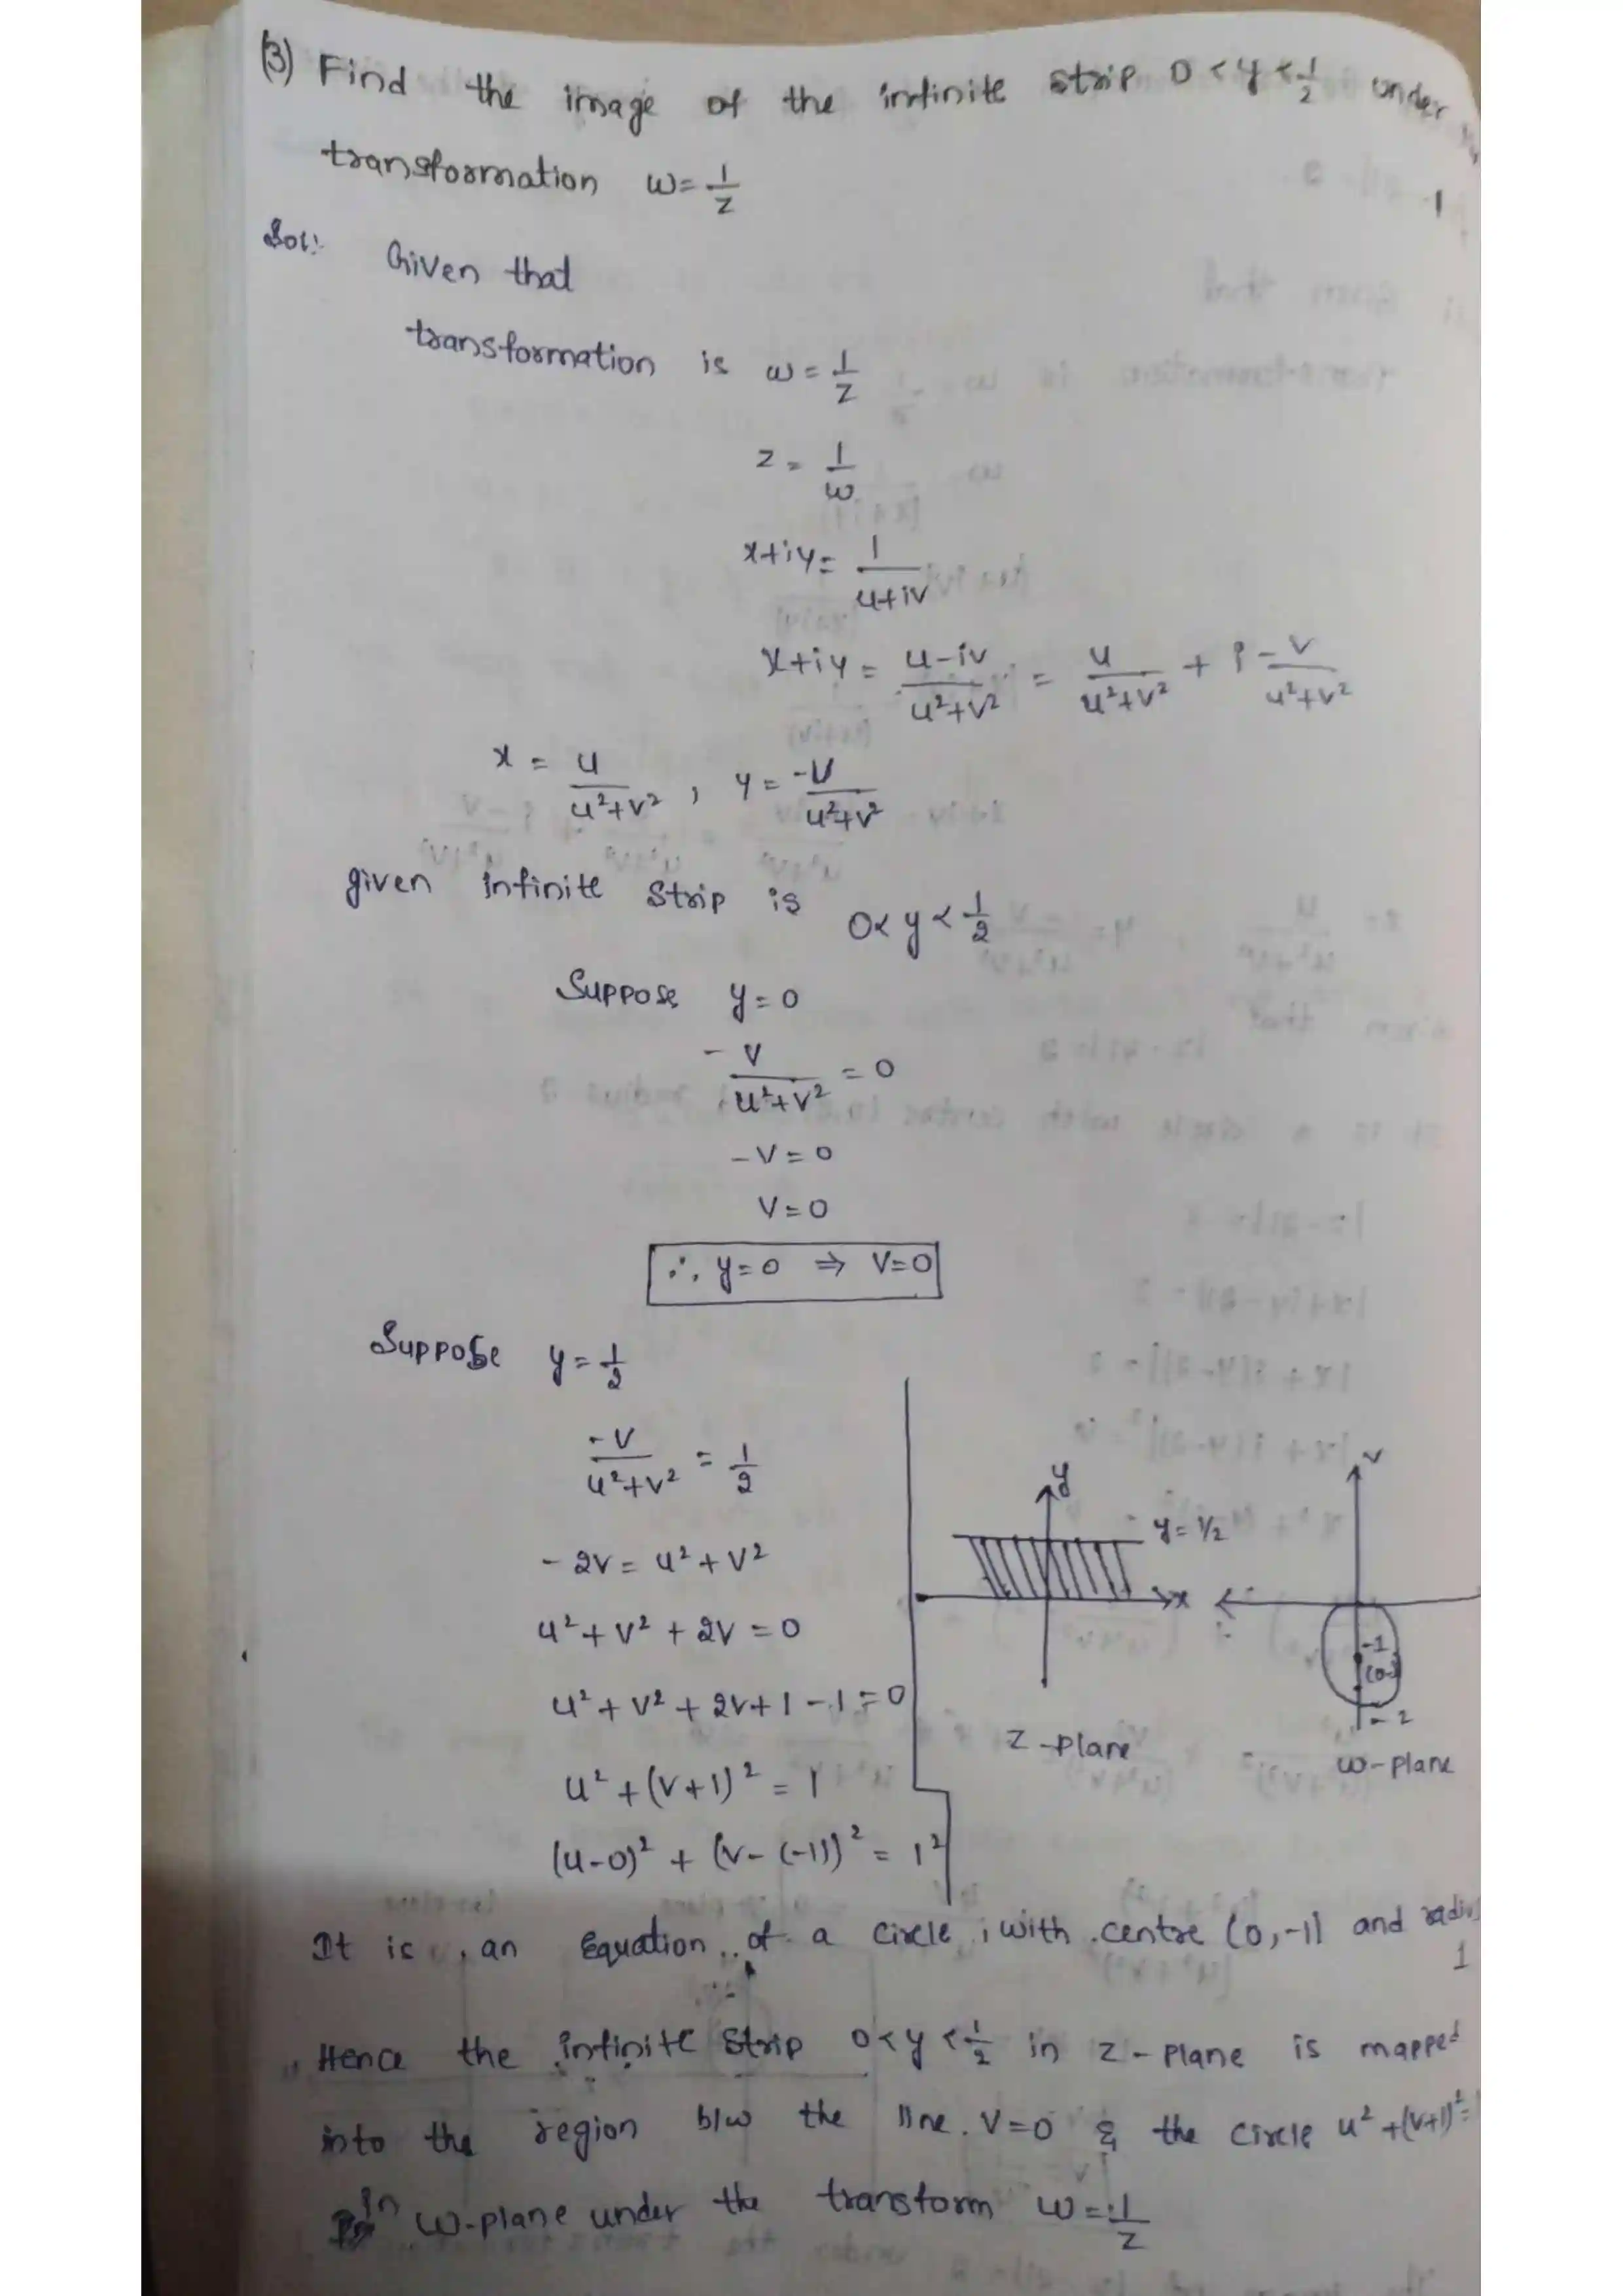 (3) Find the image of the infinite strip 0 < y < 1/2 under
transformation w = 1/z
Sol:
Given that
transformation is w = 1/z
z = 1/w
x+iy = 1/(u+iv)
x+iy = (u-iv)/(u²+v²) = u/(u²+v²) + i -v/(u²+v²)
x = u/(u²+v²) , y = -v/(u²+v²)
given infinite strip is 0 < y < 1/2
Suppose y = 0
-v/(u²+v²) = 0
-v = 0
v = 0
∴ y = 0 ⇒ v = 0
Suppose y = 1/2
-v/(u²+v²) = 1/2
- 2v = u² + v²
u² + v² + 2v = 0
u² + v² + 2v + 1 - 1 = 0
u² + (v+1)² = 1
(u-0)² + (v-(-1))² = 1²
y
y = 1/2
x
z-plane
v
-1
-2
w-plane
It is an Equation of a circle, with centre (0,-1) and radius
1
Hence the infinite strip 0 < y < 1/2 in z-plane is mapped
into the region b/w the line v=0 & the circle u² + (v+1)² =
in w-plane under the transform w = 1/z